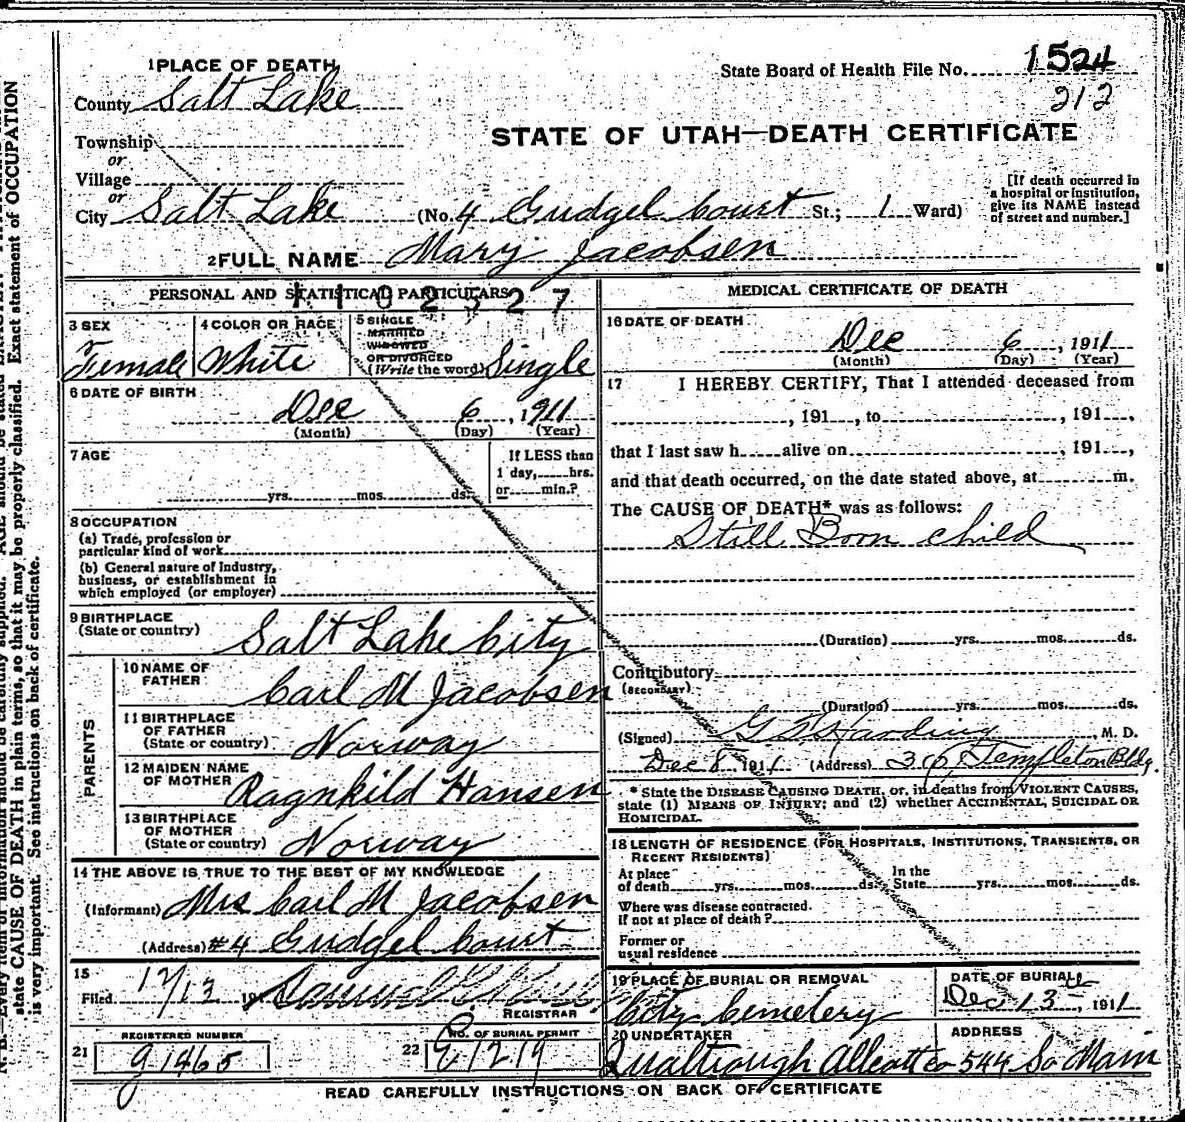 1 PLACE OF DEATH
State Board of Health File No. 1524
212
County Salt Lake
STATE OF UTAH—DEATH CERTIFICATE
Township
or
Village
or
City Salt Lake (No. 4 Gudgel Court St.; 1 Ward)
[If death occurred in
a hospital or institution,
give its NAME instead
of street and number.]
2 FULL NAME Mary Jacobsen
PERSONAL AND STATISTICAL PARTICULARS
3 SEX
Female
4 COLOR OR RACE
White
5 SINGLE
MARRIED
WIDOWED
OR DIVORCED
(Write the word) Single
6 DATE OF BIRTH
Dec 6, 1911
(Month) (Day) (Year)
7 AGE
yrs. mos. ds.
If LESS than
1 day, hrs.
or min.?
8 OCCUPATION
(a) Trade, profession or
particular kind of work
(b) General nature of Industry,
business, or establishment in
which employed (or employer)
9 BIRTHPLACE
(State or country) Salt Lake City
PARENTS
10 NAME OF
FATHER Carl M Jacobsen
11 BIRTHPLACE
OF FATHER
(State or country) Norway
12 MAIDEN NAME
OF MOTHER Ragnhild Hansen
13 BIRTHPLACE
OF MOTHER
(State or country) Norway
14 THE ABOVE IS TRUE TO THE BEST OF MY KNOWLEDGE
(Informant) Mrs Carl M Jacobsen
(Address) #4 Gudgel Court
15
Filed 12/13 19
REGISTRAR
REGISTERED NUMBER
21 g1465
NO. OF BURIAL PERMIT
22 E1219
MEDICAL CERTIFICATE OF DEATH
16 DATE OF DEATH
Dec 6, 1911
(Month) (Day) (Year)
17 I HEREBY CERTIFY, That I attended deceased from
, 191 , to , 191 ,
that I last saw h alive on , 191 ,
and that death occurred, on the date stated above, at m.
The CAUSE OF DEATH* was as follows:
Still Born child
(Duration) yrs. mos. ds.
Contributory
(SECONDARY)
(Duration) yrs. mos. ds.
(Signed) Harding, M. D.
Dec 8 1911 (Address) Templeton Bldg.
* State the DISEASE CAUSING DEATH, or, in deaths from VIOLENT CAUSES,
state (1) MEANS OF INJURY; and (2) whether ACCIDENTAL, SUICIDAL OR
HOMICIDAL.
18 LENGTH OF RESIDENCE (FOR HOSPITALS, INSTITUTIONS, TRANSIENTS, OR
RECENT RESIDENTS)
At place
of death yrs. mos. ds.
In the
State yrs. mos. ds.
Where was disease contracted.
If not at place of death?
Former or
usual residence
19 PLACE OF BURIAL OR REMOVAL
City Cemetery
DATE OF BURIAL
Dec 13, 1911
20 UNDERTAKER
Qualtrough Allcott Co
ADDRESS
544 So Main
READ CAREFULLY INSTRUCTIONS ON BACK OF CERTIFICATE
state CAUSE OF DEATH in plain terms, so that it may be properly classified. Exact statement of OCCUPATION
is very important. See instructions on back of certificate.